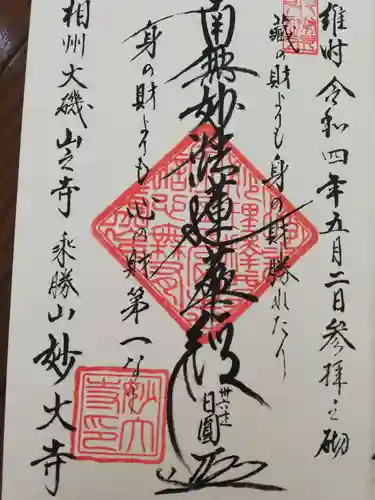 維時令和四年五月二日参拝之砌
蔵の財よりも身の財勝れたり
南無妙法蓮華経
身の財よりも心の財第一なり
丗七世
日圓
相州大磯山之寺乗勝山妙大寺